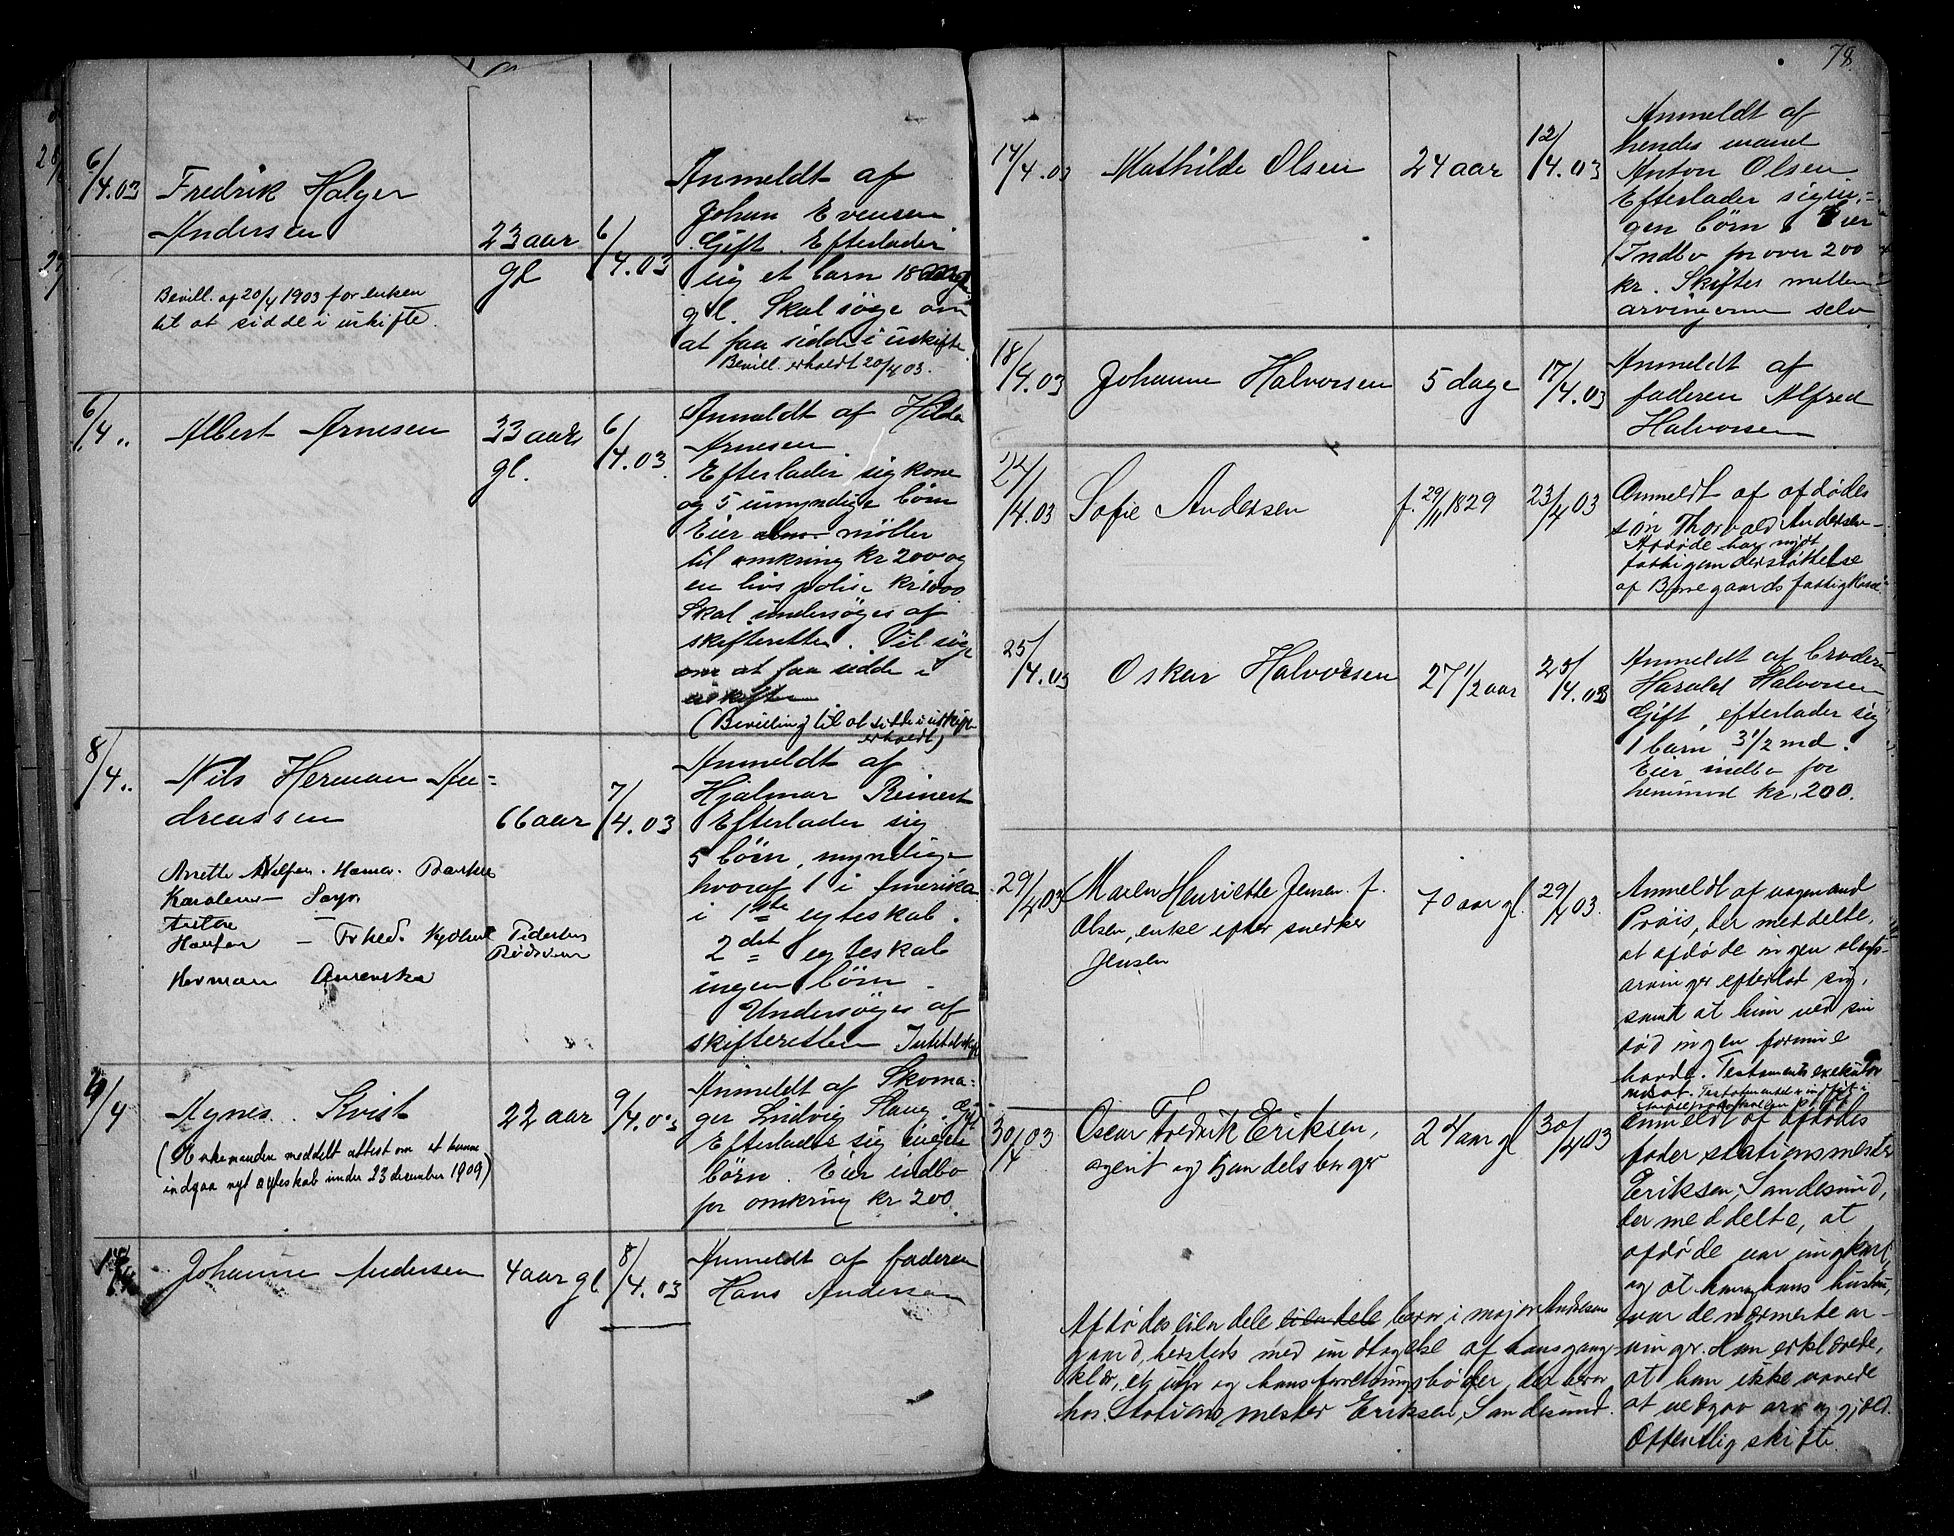 6/4.03
Fredrik Holger
Andersen
23 aar
gl
6/4.03
Anmeldt af
Johan Evensen
Gift. Efterlader
sig et barn 18
gl. Skal søge om
at faa sidde i uskifte
Bevill. erholdt 20/4 03.
Bevill. af 20/4 1903 for enken
til at sidde i uskifte.
6/4 "
Albert Arnesen
33 aar
gl.
6/4.03.
Anmeldt af Hilda
Arnesen
Efterlader sig kone
og 5 umyndige børn
Eier møbler
til omkring kr 200 og
en livspolise kr 1000
Skal undersøges af
skifteretten. Vil søge
om at faa sidde i
uskiften
(Bevilling til at sidde i uskifte
erholdt)
8/4 "
Nils Herman An=
dreassen
66 aar
7/4.03
Anmeldt af
Hjalmar Reinert
Efterlader sig
5 børn, myndige
hvoraf 1 i Amerika
i 1ste egteskab.
2det egteskab
ingen børn.
Undersøges af
skifteretten
Herman Amerika
9/4
Agnes Kvist
22 aar
9/4.03
Anmeldt af Skoma=
ger Ludvig Slang. Gift.
Efterlader sig ingen
børn. Eier indbo
for omkring kr 200.
(Enkemanden meddelt attest om at kunne
indgaa nyt egteskab under 23 december 1909)
Johanne Andersen
4 aar gl
8/4.03
Anmeldt af faderen
Hans Andersen
78.
14/4.03
Mathilde Olsen
24 aar
12/4.03
Anmeldt af
hendes mand
Anton Olsen
Efterlader sig in=
gen børn. Eier
Indbo for over 200
kr. Skiftes mellem
arvingerne selv
18/4.03
Johanne Halvorsen
5 dage
17/4.03
Anmeldt af
faderen Alfred
Halvorsen
24/4.03
Sofie Andersen
f. 29/11 1829
23/4 03
Anmeldt af afdødes
søn Thorvald Andersen
Afdøde har nydt
fattigunderstøttelse
af Borregaards fattigkasse
25/4.03
Oskar Halvorsen
27 1/2 aar
25/4.03
Anmeldt af broderen
Harald Halvorsen
Gift, efterlader sig
1 barn 3 1/2 md.
Eier indbo for
henimod kr. 200.
29/4 03
Maren Henriette Jensen f.
Olsen, enke efter snerker
Jensen
70 aar gl.
29/4 03.
Anmeldt af vognmand
Prøis, der meddelte,
at afdøde ingen slegts-
arvinger efterlod sig,
samt at hun ved sin
død ingen formue
havde. Testamentsexekutor
30/4 03
Oscar Fredrik Eriksen,
agent og handelsborger
24 aar gl
30/4 03
Anmeldt af afdødes
fader stationsmester
Eriksen, Sandesund,
der meddelte, at
afdøde var ungkarl,
og at han og hans hustru,
var de nærmeste ar-
vinger. Han erklærede,
at han ikke vovede
at vedgaa arv og gjæld.
Offentlig skifte.
Afdødes eiendele eiendele beror i major Andersens
gaard, hersteds med undtagelse af hans gang-
klær, et uhr og hans forretningsbøger, der beror
hos Stationsmester Eriksen, Sandesund.